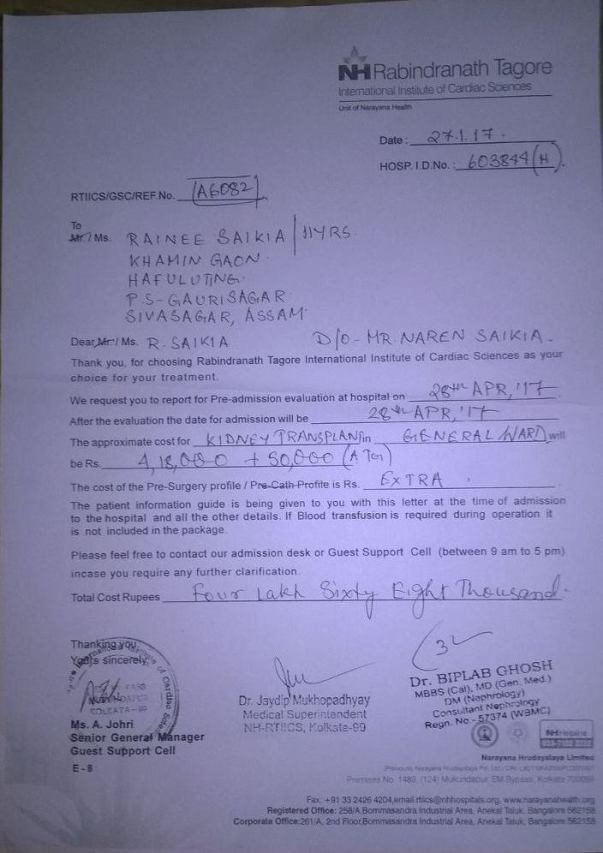 NH Rabindranath Tagore
International Institute of Cardiac Sciences
Unit of Narayana Health
Date : 27.1.17.
HOSP. I.D.No. : 603844 (H).
RTIICS/GSC/REF.No. A6082
To
Mr./ Ms. RAINEE SAIKIA / 11YRS.
KHAMIN GAON.
HAFULUTING.
P.S-GAURISAGAR
SIVASAGAR, ASSAM
Dear,Mr./ Ms. R. SAIKIA D/O-MR. NAREN SAIKIA.
Thank you, for choosing Rabindranath Tagore International Institute of Cardiac Sciences as your
choice for your treatment.
We request you to report for Pre-admission evaluation at hospital on 28th APR,'17
After the evaluation the date for admission will be 28th APR,'17
The approximate cost for KIDNEY TRANSPLANT in GENERAL WARD will
be Rs. 4,18,000 + 50,000
The cost of the Pre-Surgery profile / Pre-Cath-Profile is Rs. EXTRA.
The patient information guide is being given to you with this letter at the time of admission
to the hospital and all the other details. If Blood transfusion is required during operation it
is not included in the package.
Please feel free to contact our admission desk or Guest Support Cell (between 9 am to 5 pm)
incase you require any further clarification.
Total Cost Rupees Four Lakh Sixty Eight Thousand.
Thanking you,
Yours sincerely,
KOLKATA-99
Ms. A. Johri
Senior General Manager
Guest Support Cell
E-8
Dr. Jaydip Mukhopadhyay
Medical Superintendent
NH-RTIICS, Kolkata-99
Dr. BIPLAB GHOSH
MBBS (Cal), MD (Gen. Med.)
DM (Nephrology)
Consultant Nephrology
Regn. No.-57374 (WBMC)
Narayana Hrudayalaya Limited
Premises No. 1489, (124) Mukundapur, EM Bypass, Kolkata 700099
Fax: +91 33 2426 4204,email:rtiics@nhhospitals.org, www.narayanahealth.org
Registered Office: 258/A,Bommasandra Industrial Area, Anekal Taluk, Bangalore 562158
Corporate Office:261/A, 2nd Floor,Bommasandra Industrial Area, Anekal Taluk, Bangalore 562158